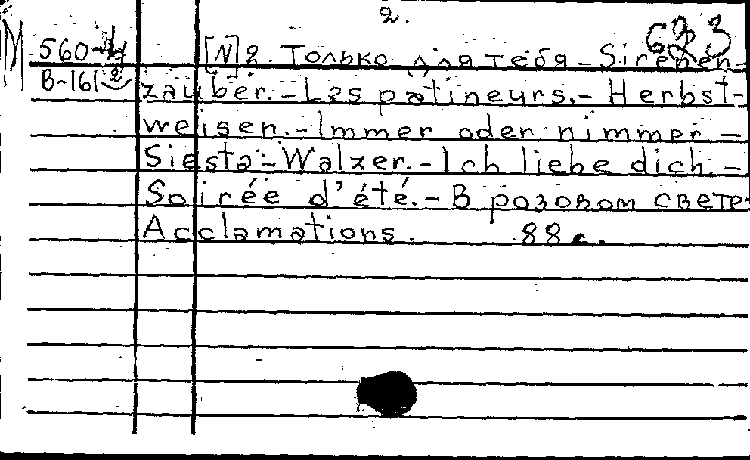 2.
М 633
560-4 [N] 2. Только для тебя - Sirenen-
В-161 2 zauber. - Les patineurs. - Herbst-
weisen. - Immer oder nimmer -
Siesta - Walzer. - Ich liebe dich. -
Soirée d'été. - В розовом свете-
Acclamations. 88 с.